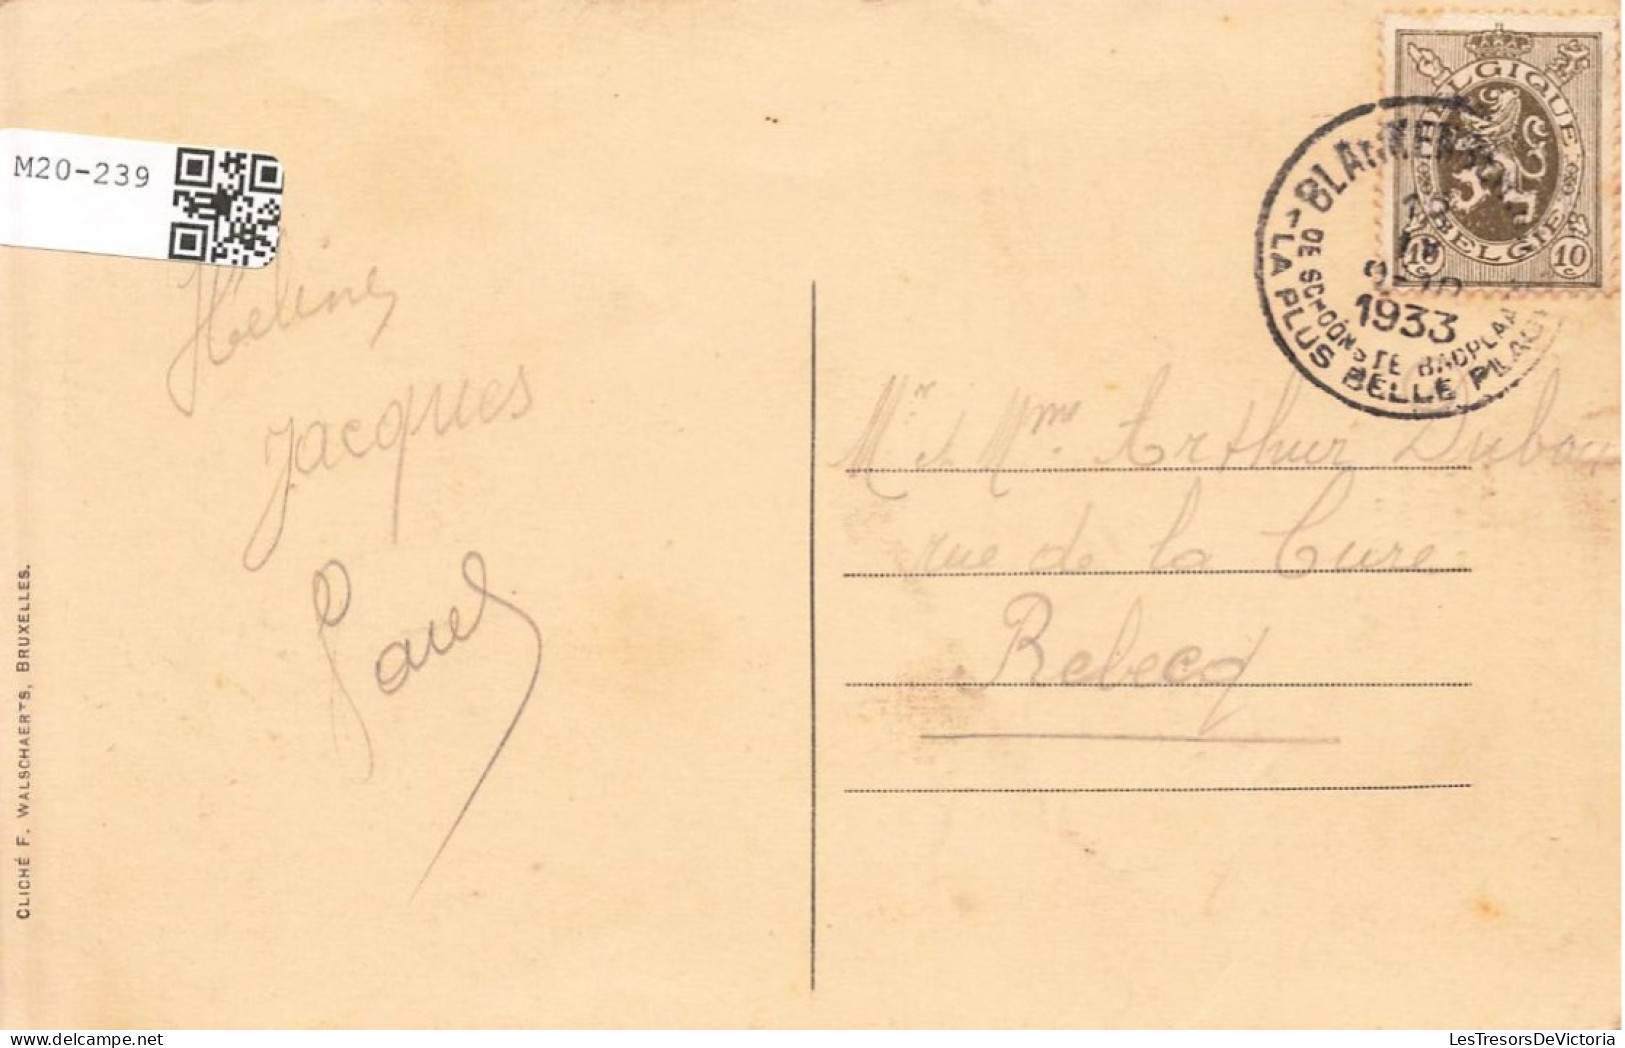 M20-239
Helene
Jacques
Paul
CLICHÉ F. WALSCHAERTS, BRUXELLES.
BELGIQUE
BELGIË
10c 10c
BLANKENBERGE
1933
DE SCHOONSTE BADPLAATS
LA PLUS BELLE PLAGE
Mr & Mme Arthur Dubou
rue de la Cure
Rebecq
LesTresorsDeVictoria